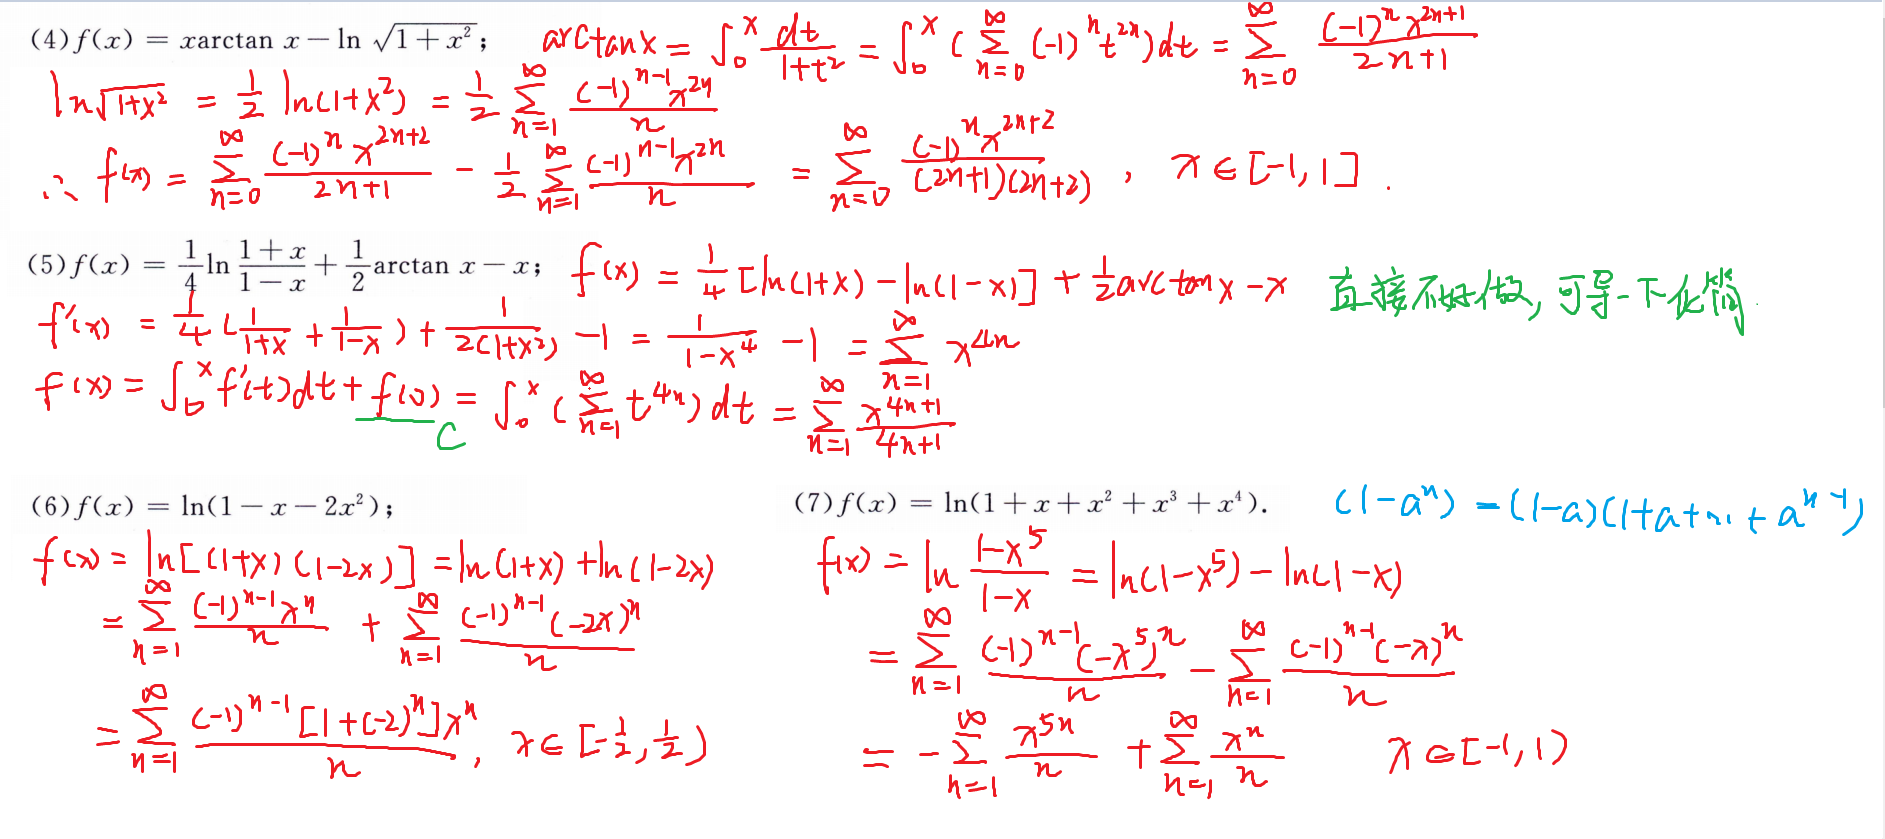 (4) f(x) = xarctan x − ln √(1+x²); arctanx = ∫₀ˣ dt/(1+t²) = ∫₀ˣ (∑_{n=0}^{∞} (-1)ⁿt²ⁿ)dt = ∑_{n=0}^{∞} (-1)ⁿx^{2n+1}/(2n+1)
ln√(1+x²) = 1/2 ln(1+x²) = 1/2 ∑_{n=1}^{∞} (-1)^{n-1}x^{2n}/n
∴ f(x) = ∑_{n=0}^{∞} (-1)ⁿx^{2n+2}/(2n+1) − 1/2 ∑_{n=1}^{∞} (-1)^{n-1}x^{2n}/n = ∑_{n=0}^{∞} (-1)ⁿx^{2n+2}/((2n+1)(2n+2)), x∈[-1,1].
(5) f(x) = 1/4 ln (1+x)/(1−x) + 1/2 arctan x − x; f(x) = 1/4 [ln(1+x) − ln(1−x)] + 1/2 arctanx − x 直接不好做,可导一下化简.
f'(x) = 1/4 (1/(1+x) + 1/(1−x)) + 1/(2(1+x²)) − 1 = 1/(1−x⁴) − 1 = ∑_{n=1}^{∞} x^{4n}
f(x) = ∫₀ˣ f'(t)dt + f(0) = ∫₀ˣ (∑_{n=1}^{∞} t^{4n})dt = ∑_{n=1}^{∞} x^{4n+1}/(4n+1)
C
(6) f(x) = ln(1−x−2x²);
f(x) = ln[(1+x)(1−2x)] = ln(1+x) + ln(1−2x)
= ∑_{n=1}^{∞} (-1)^{n-1}xⁿ/n + ∑_{n=1}^{∞} (-1)^{n-1}(-2x)ⁿ/n
= ∑_{n=1}^{∞} (-1)^{n-1}[1+(-2)ⁿ]xⁿ/n, x∈[-1/2, 1/2)
(7) f(x) = ln(1+x+x²+x³+x⁴). (1−aⁿ) = (1−a)(1+a+…+a^{n-1})
f(x) = ln (1−x⁵)/(1−x) = ln(1−x⁵) − ln(1−x)
= ∑_{n=1}^{∞} (-1)^{n-1}(-x⁵)ⁿ/n − ∑_{n=1}^{∞} (-1)^{n-1}(-x)ⁿ/n
= −∑_{n=1}^{∞} x^{5n}/n + ∑_{n=1}^{∞} xⁿ/n x∈[-1,1)